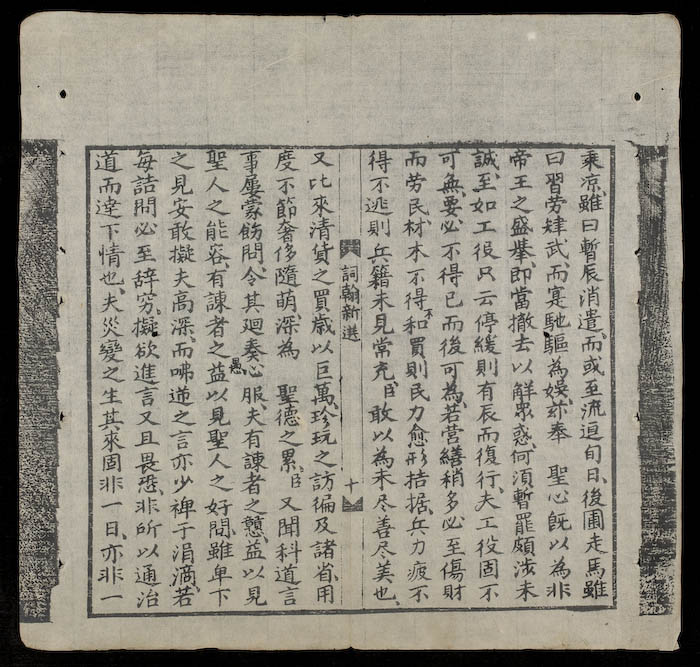 乘凉、雖曰暫辰消遣、而或至流逗旬日、後圃走馬雖
曰習劳肄武、而寔馳驅為娯、玆奉 聖心既以為非
帝王之盛举、即當撤去以解衆惑、何須暫罷頗涉未
誠、至如工役只云停緩則有辰而復行、夫工役固不
可無、要必不得已而後可為、若营繕稍多必至傷財
而劳民、材木不得不和買則民力愈形拮据、兵力疲不
得不迯則兵籍未見常充、臣敢以為未尽善尽美也、
詞翰新選 十
又比來清貨之買歳以巨萬、珍玩之訪徧及諸省、用
度不節奢侈隨萌、深為 聖德之累、臣又聞科道言
事屢蒙飭問、令其廻奏、愚心服夫有諌者之戇、益以見
聖人之能容、有諌者之益以見聖人之好問、雖卑下
之見安敢擬夫高深、而咈逆之言亦少裨于涓滴、若
每詰問必至辞穷、擬欲進言又且畏恐、非所以通治
道而達下情也、夫災變之生其求固非一日、亦非一